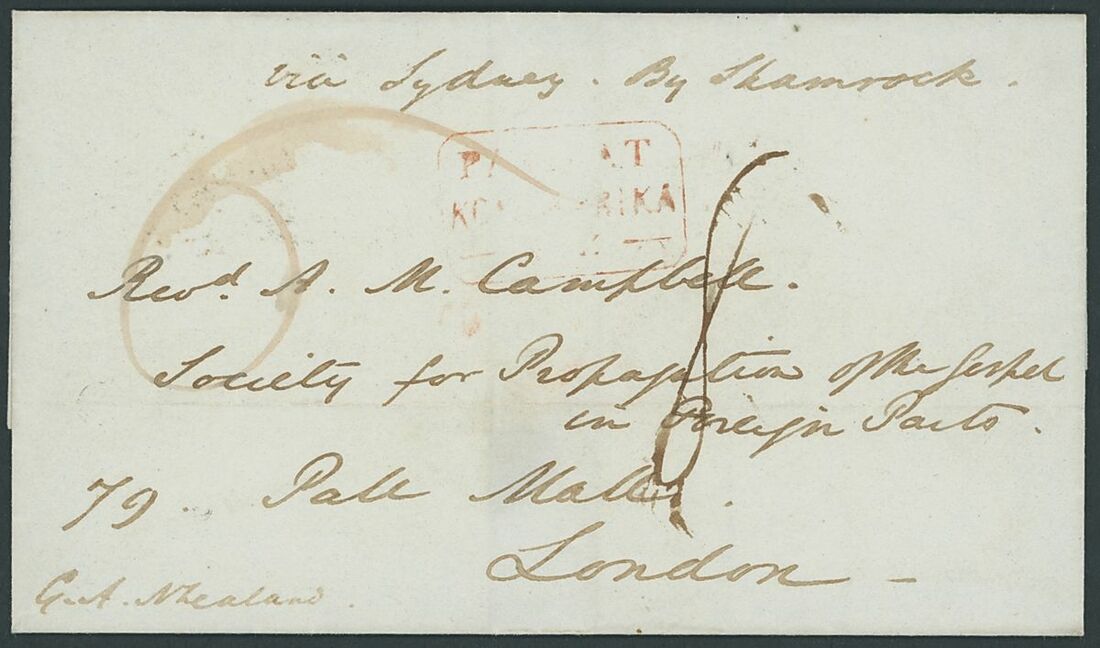 via Sydney. By Shamrock.
PA AT
KO RIKA
Revd. A. M. Campbell.
Society for Propagation of the Gospel
in Foreign Parts.
79. Pall Mall.
London -
G. A. NZealand.